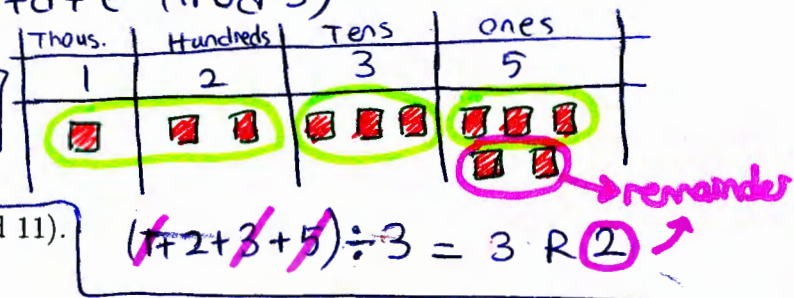 Thous. Hundreds Tens Ones
1 2 3 5
remainder
d 11).
(1+2+3+5)÷3 = 3 R 2